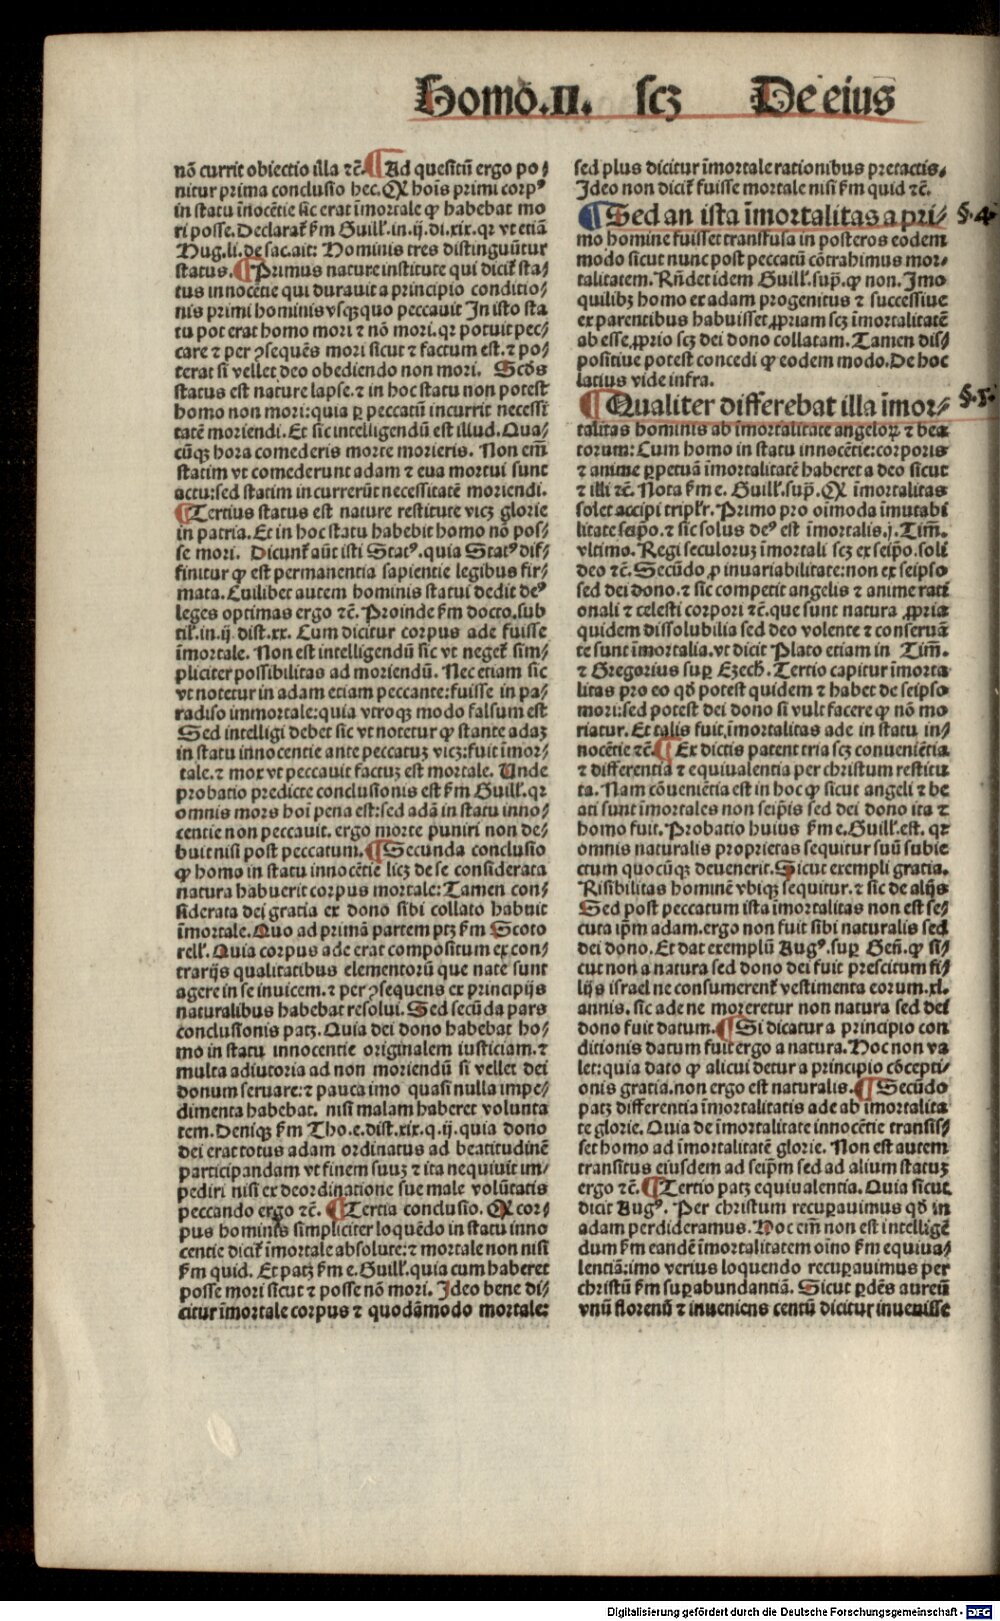 Homo.II. scꝫ De eius
nō currit obiectio illa ⁊c̄. ¶Ad quesitū ergo po⸗
nitur prima conclusio hec. Ꝙ hoīs primi corpꝰ
in statu inocētie sic erat īmortale ꝙ habebat mo
ri posse. Declarat̄ ẜm Guill̕.in.ij.di.xix.qꝛ vt etiā
Hug.li.de sac.ait: Hominis tres distinguūtur
status. ¶Primus nature institute qui dicit̄ sta⸗
tus innocētie qui durauit a principio conditio⸗
nis primi hominis vsqꝫquo peccauit In isto sta
tu poterat homo mori ⁊ nō mori.qꝛ potuit pec⸗
care ⁊ per ꝯsequēs mori sicut ⁊ factum est.⁊ po⸗
terat si vellet deo obediendo non mori. Scd̄s
status est nature lapse.⁊ in hoc statu non potest
homo non mori:quia ꝑ peccatū incurrit necessi
tatē moriendi. Et sic intelligendū est illud. Qua⸗
cūqꝫ hora comederis morte morieris. Non eīm
statim vt comederunt adam ⁊ eua mortui sunt
actu:sed statim incurrerūt necessitatē moriendi.
¶Tertius status est nature restitute vicꝫ glorie
in patria. Et in hoc statu habebit homo nō pos⸗
se mori. Dicunt̄ aūt isti Statꝰ.quia Statꝰ dif⸗
finitur ꝙ est permanentia sapientie legibus fir⸗
mata. Cuilibet autem hominis statui dedit deꝰ
leges optimas ergo ⁊c̄. Proinde ẜm docto.sub
til̕.in.ij.dist.xx. Cum dicitur corpus ade fuisse
īmortale. Non est intelligendū sic vt neget̄ sim⸗
pliciter possibilitas ad moriendū. Nec etiam sic
vt notetur in adam etiam peccante:fuisse in pa⸗
radiso immortale:quia vtroqꝫ modo falsum est
Sed intelligi debet sic vt notetur ꝙ stante adaꝫ
in statu innocentie ante peccatuꝫ vicꝫ:fuit īmor⸗
tale.⁊ mox vt peccauit factuꝫ est mortale. Unde
probatio predicte conclusionis est ẜm Guill̕.qꝛ
omnis mors hoī pena est:sed adā in statu inno⸗
centie non peccauit. ergo morte puniri non de⸗
buit nisi post peccatum. ¶Secunda conclusio
ꝙ homo in statu innocētie licꝫ de se considerata
natura habuerit corpus mortale: Tamen con⸗
siderata dei gratia ex dono sibi collato habuit
īmortale. Quo ad primā partem ptꝫ ẜm Scoto
rell̕. Quia corpus ade erat compositum ex con⸗
trarijs qualitatibus elementorū que nate sunt
agere in se inuicem.⁊ per ꝯsequens ex principijs
naturalibus habebat resolui. Sed secūda pars
conclusionis patꝫ. Quia dei dono habebat ho⸗
mo in statu innocentie originalem iusticiam.⁊
multa adiutoria ad non moriendū si vellet dei
donum seruare:⁊ pauca imo quasi nulla impe⸗
dimenta habebat. nisi malam haberet volunta
tem. Deniqꝫ ẜm Tho.e.dist.xix.q.ij.quia dono
dei erat totus adam ordinatus ad beatitudinē
participandam vt finem suuꝫ ⁊ ita nequiuit im⸗
pediri nisi ex deordinatione sue male volūtatis
peccando ergo ⁊c̄. ¶Tertia conclusio. Ꝙ cor⸗
pus hominis simpliciter loquēdo in statu inno
centie dicit̄ īmortale absolute:⁊ mortale non nisi
ẜm quid. Et patꝫ ẜm e. Guill̕.quia cum haberet
posse mori sicut ⁊ posse nō mori. Ideo bene di⸗
citur īmortale corpus ⁊ quodāmodo mortale:
sed plus dicitur īmortale rationibus pretactis.
Ideo non dicit̄ fuisse mortale nisi ẜm quid ⁊c̄.
¶Sed an ista īmortalitas a pri⸗ §.4.
mo homine fuisset transfusa in posteros eodem
modo sicut nunc post peccatū cōtrahimus mor⸗
talitatem. Rn̄det idem Guill̕.sup̄.ꝙ non. Imo
quilibꝫ homo ex adam progenitus ⁊ successiue
ex parentibus habuisset ꝓpriam scꝫ īmortalitatē
ab esse ꝓprio scꝫ dei dono collatam. Tamen dis⸗
positiue potest concedi ꝙ eodem modo. De hoc
latius vide infra.
¶Qualiter differebat illa īmor⸗ §.5.
talitas hominis ab īmortalitate angeloꝝ ⁊ bea
torum: Cum homo in statu innocētie:corporis
⁊ anime ꝑpetuā īmortalitatē haberet a deo sicut
⁊ illi ⁊c̄. Nota ẜm e. Guill̕.sup̄. Ꝙ īmortalitas
solet accipi tripl̕r. Primo pro oīmoda īmutabi
litate seip̄o.⁊ sic solus deꝰ est īmortalis.j. Tim̄.
vltimo. Regi seculoruꝫ īmortali scꝫ ex seip̄o.soli
deo ⁊c̄. Secūdo ꝓ inuariabilitate:non ex seipso
sed dei dono.⁊ sic competit angelis ⁊ anime rati
onali ⁊ celesti corpori ⁊c̄.que sunt natura ꝓpria
quidem dissolubilia sed deo volente ⁊ conseruā
te sunt īmortalia.vt dicit Plato etiam in Tim̄.
⁊ Gregorius suꝑ Ezech̄. Tertio capitur īmorta
litas pro eo qd̄ potest quidem ⁊ habet de seipso
mori:sed potest dei dono si vult facere ꝙ nō mo
riatur. Et talis fuit īmortalitas ade in statu in⸗
nocētie ⁊c̄. ¶Ex dictis patent tria scꝫ conueniētia
⁊ differentia ⁊ equiualentia per christum restitu
ta. Nam cōueniētia est in hoc ꝙ sicut angeli ⁊ be
ati sunt īmortales non seip̄is sed dei dono ita ⁊
homo fuit. Probatio huius ẜm e. Guill̕.est. qꝛ
omnis naturalis proprietas sequitur suū subie
ctum quocūqꝫ deuenerit. Sicut exempli gratia.
Risibilitas hominē vbiqꝫ sequitur.⁊ sic de alijs
Sed post peccatum ista īmortalitas non est se⸗
cuta ip̄m adam.ergo non fuit sibi naturalis sed
dei dono. Et dat exemplū Augꝰ.suꝑ Gen̄.ꝙ si⸗
cut non a natura sed dono dei fuit prescitum fi⸗
lijs israel ne consumerent̄ vestimenta eorum.xl.
annis. sic ade ne moreretur non natura sed dei
dono fuit datum. ¶Si dicatur a principio con
ditionis datum fuit ergo a natura. Hoc non va
let:quia dato ꝙ alicui detur a principio cōcepti⸗
onis gratia.non ergo est naturalis. ¶Secūdo
patꝫ differentia īmortalitatis ade ab īmortalita
te glorie. Quia de īmortalitate innocētie transis⸗
set homo ad īmortalitatē glorie. Non est autem
transitus eiusdem ad seip̄m sed ad alium statuꝫ
ergo ⁊c̄. ¶Tertio patꝫ equiualentia. Quia sicut
dicit Augꝰ. Per christum recuꝑauimus qd̄ in
adam perdideramus. Hoc eīm non est intelligē
dum ẜm eandē īmortalitatem oīno ẜm equiua⸗
lentiā:imo verius loquendo recuꝑauimus per
christū ẜm suꝑabundantiā. Sicut ꝑdēs aureū
vnū florenū ⁊ inueniens centū dicitur inuenisse
Digitalisierung gefördert durch die Deutsche Forschungsgemeinschaft - DFG